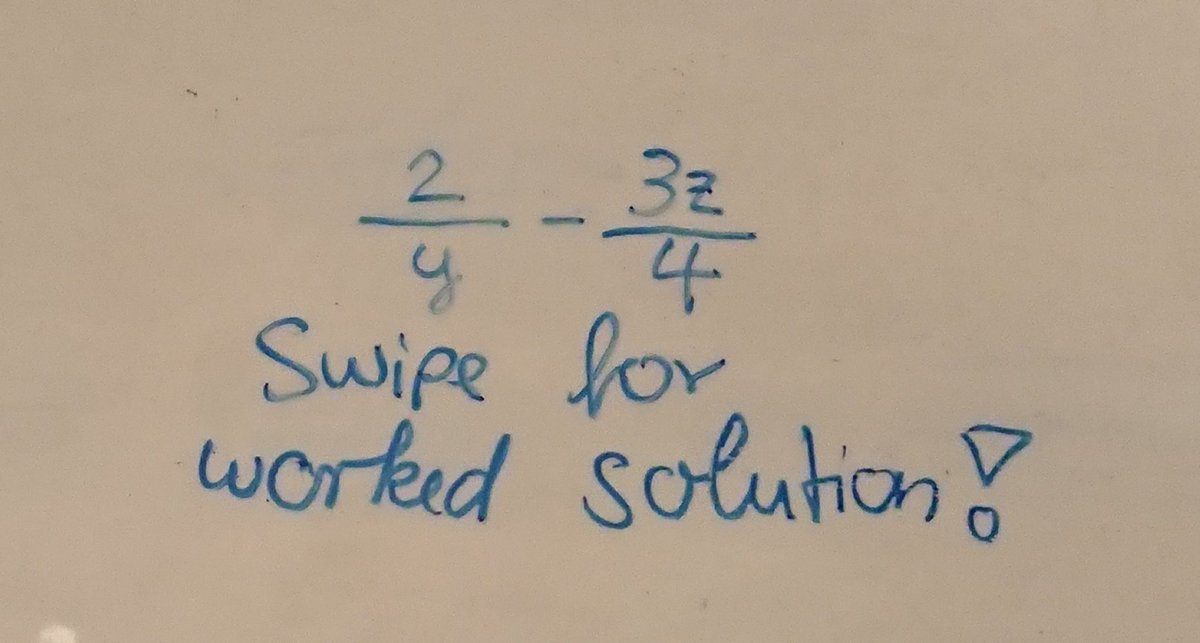 2/y - 3z/4
Swipe for
worked solution!